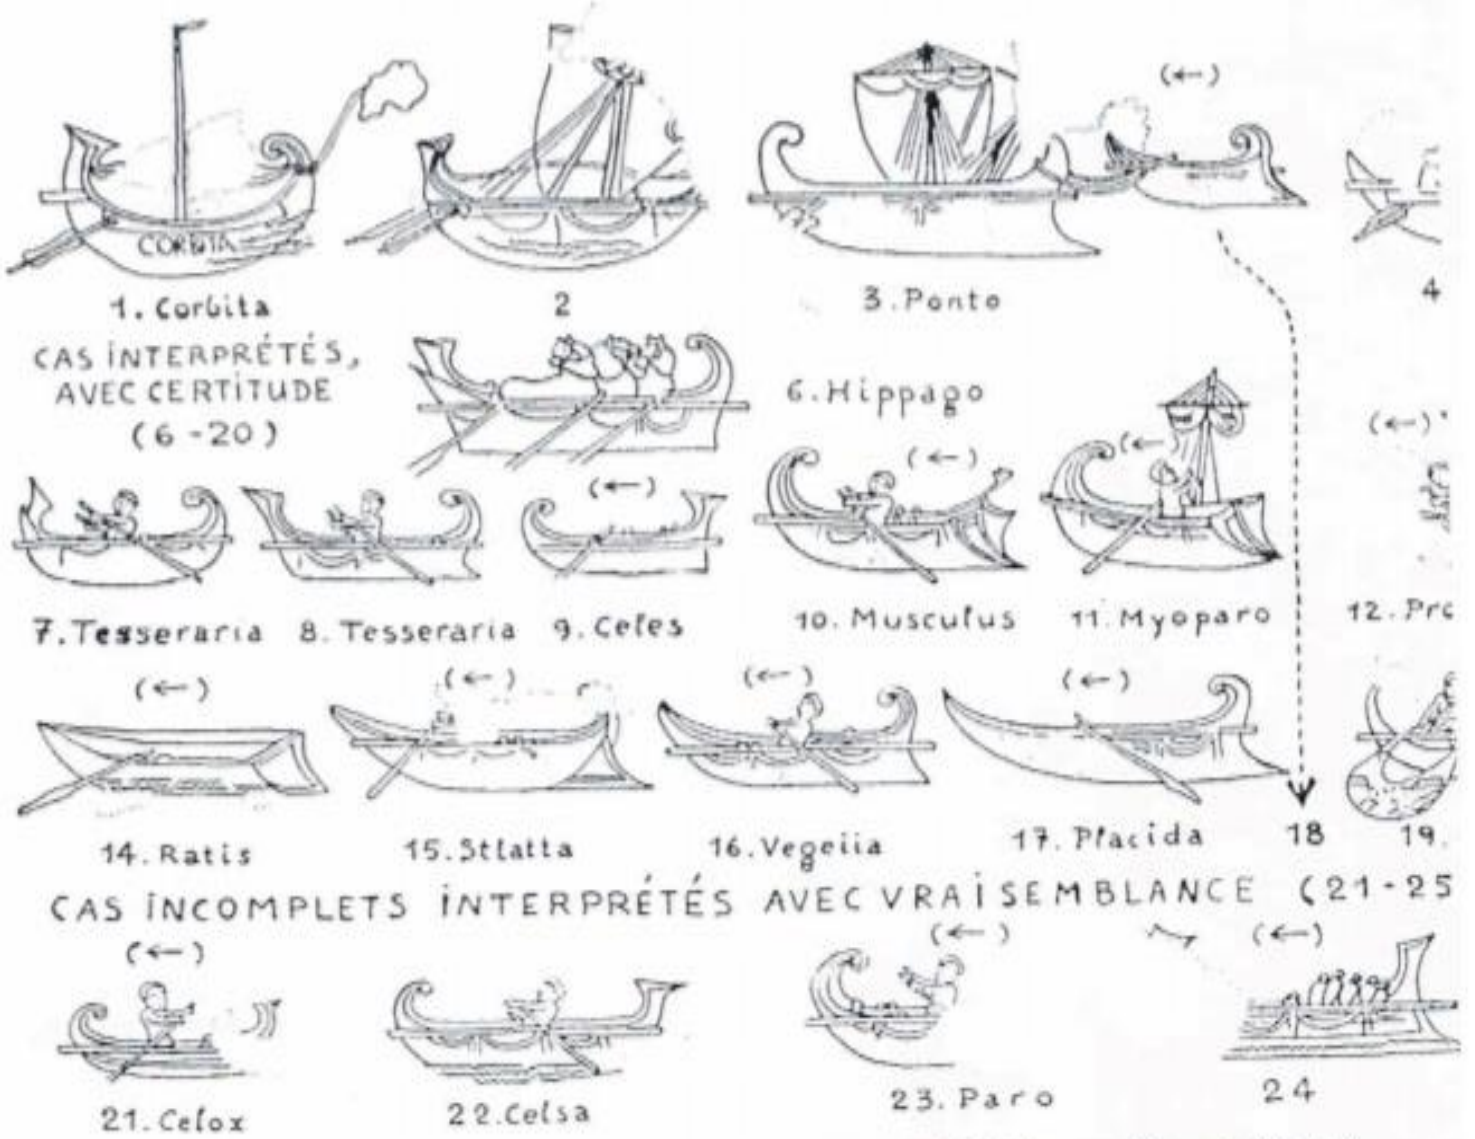 CORBITA
1. Corbita
2
3. Ponto
4
CAS INTERPRÉTÉS,
AVEC CERTITUDE
(6-20)
6. Hippago
7. Tesseraria
8. Tesseraria
9. Celes
10. Musculus
11. Myoparo
12. Pro
14. Ratis
15. Stlatta
16. Vegeiia
17. Placida
18
19.
CAS INCOMPLETS INTERPRÉTÉS AVEC VRAISEMBLANCE (21-25
21. Celox
22. Celsa
23. Paro
24